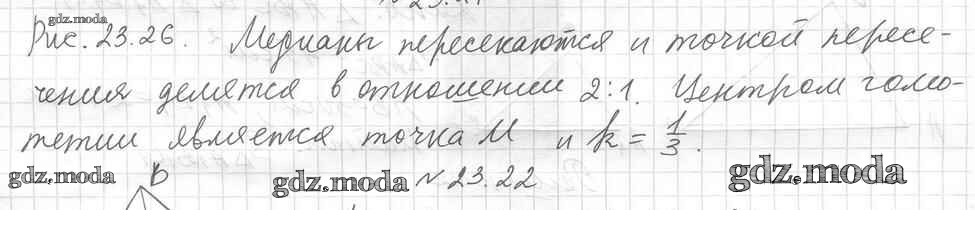 gdz.moda
Рис. 23.26. Медианы пересекаются и точкой пересе-
чения делятся в отношении 2:1. Центром гомо-
тетии является точка M и k = 1/3.
gdz.moda B gdz.moda № 23.22 gdz.moda